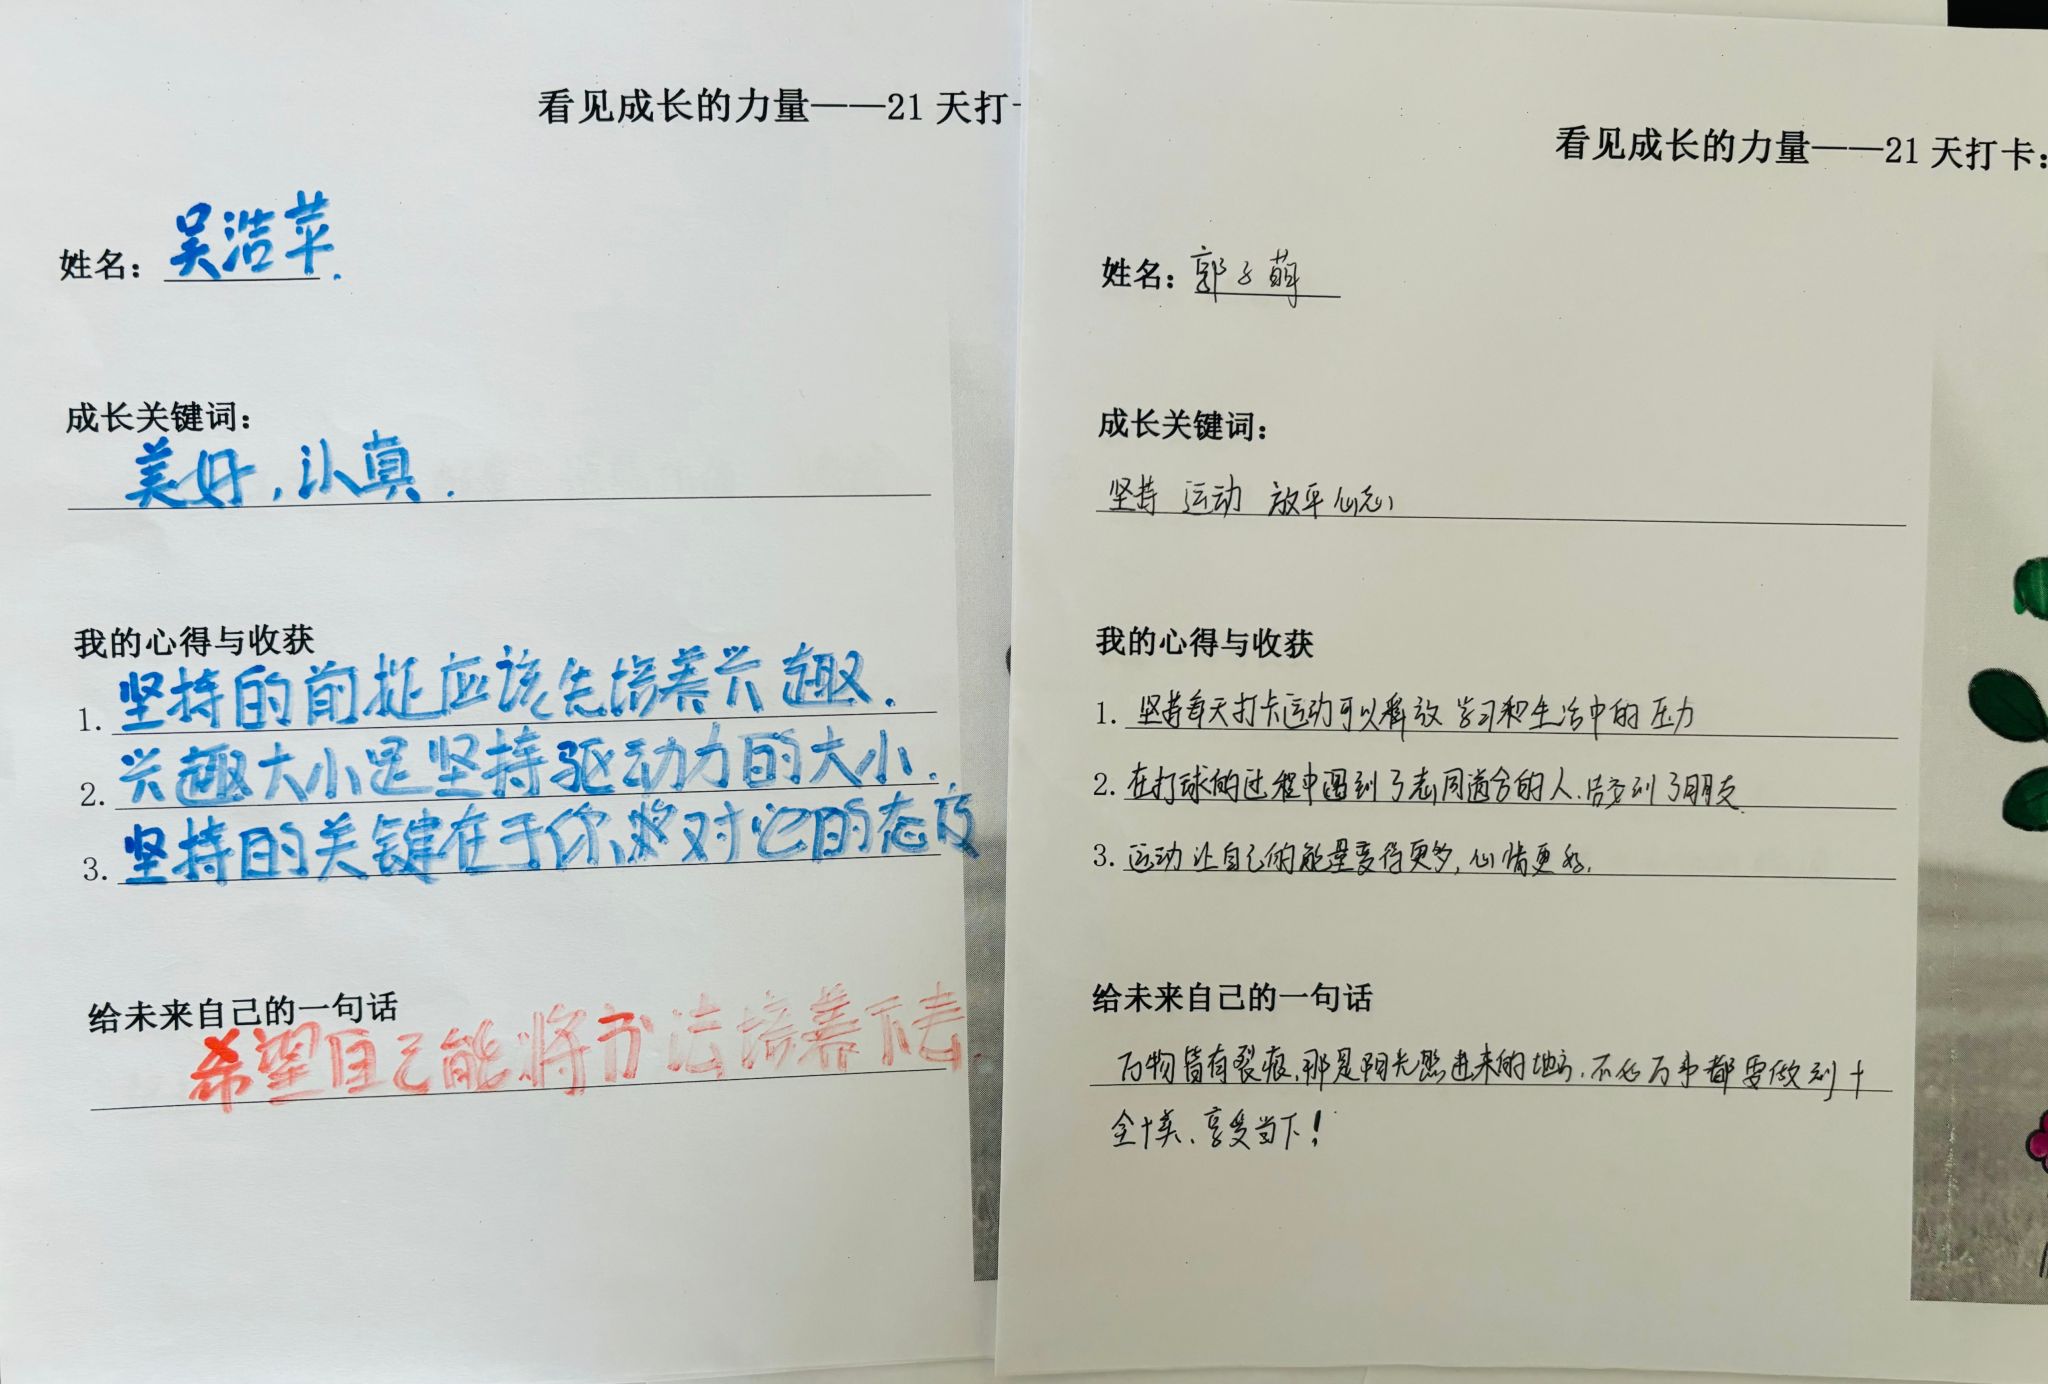 看见成长的力量——21 天打
姓名：吴浩苹.
成长关键词：
美好，认真.
我的心得与收获
1. 坚持的前提应该先培养兴趣.
2. 兴趣大小是坚持驱动力的大小.
3. 坚持的关键在于你将对它的态度
给未来自己的一句话
希望自己能将书法培养下去.
看见成长的力量——21 天打卡：
姓名：郭子萌
成长关键词：
坚持 运动 放平心态
我的心得与收获
1. 坚持每天打卡运动可以释放学习和生活中的压力
2. 在打球的过程中遇到了志同道合的人、结交到了朋友.
3. 运动让自己的能量变得更多，心情更好.
给未来自己的一句话
万物皆有裂痕，那是阳光照进来的地方，不必万事都要做到十
全十美、享受当下！